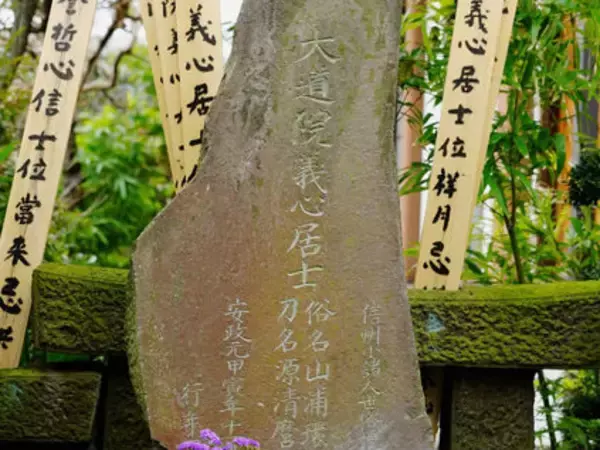 大道院義心居士
信州小諸人
俗名山浦環
刀名源清麿
安政元甲寅年十
行年
義心居士位祥月忌
義心居士
哲心信士位當来忌